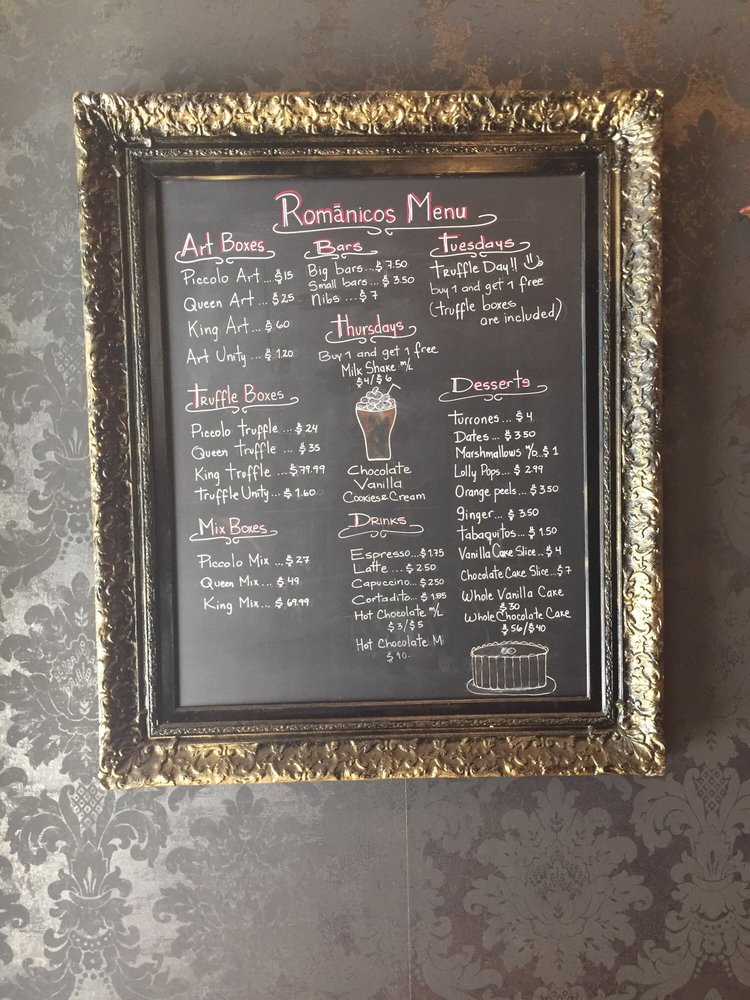 Romānicos Menu
Art Boxes
Piccolo Art ... $15
Queen Art ... $25
King Art ... $60
Art Unity ... $ 1.20
Truffle Boxes
Piccolo truffle ... $24
Queen Truffle ... $35
King Truffle ... $79.99
Truffle Unity ... $ 1.60
Mix Boxes
Piccolo Mix ... $27
Queen Mix ... $49
King Mix ... $69.99
Bars
Big bars ... $7.50
Small bars ... $ 3.50
Nibs ... $ 7
Thursdays
Buy 1 and get 1 free
Milk Shake m/L
$4/$6
Chocolate
Vanilla
Cookies&Cream
Drinks
Espresso...$1.75
Latte ... $2.50
Capuccino...$2.50
Cortadito... $ 1.85
Hot Chocolate m/L
$3/$5
Hot Chocolate M
$10.
Tuesdays
Truffle Day!!
buy 1 and get 1 free
(truffle boxes
are included)
Desserts
Turrones ... $ 4
Dates ... $ 3.50
Marshmallows %..$ 1
Lolly Pops... $ 2.99
Orange peels... $3.50
ginger... $ 3.50
tabaquitos... $ 1.50
Vanilla Cake Slice... $ 4
Chocolate Cake Slice...$7
Whole Vanilla Cake
$30
Whole Chocolate Cake
$56/$40